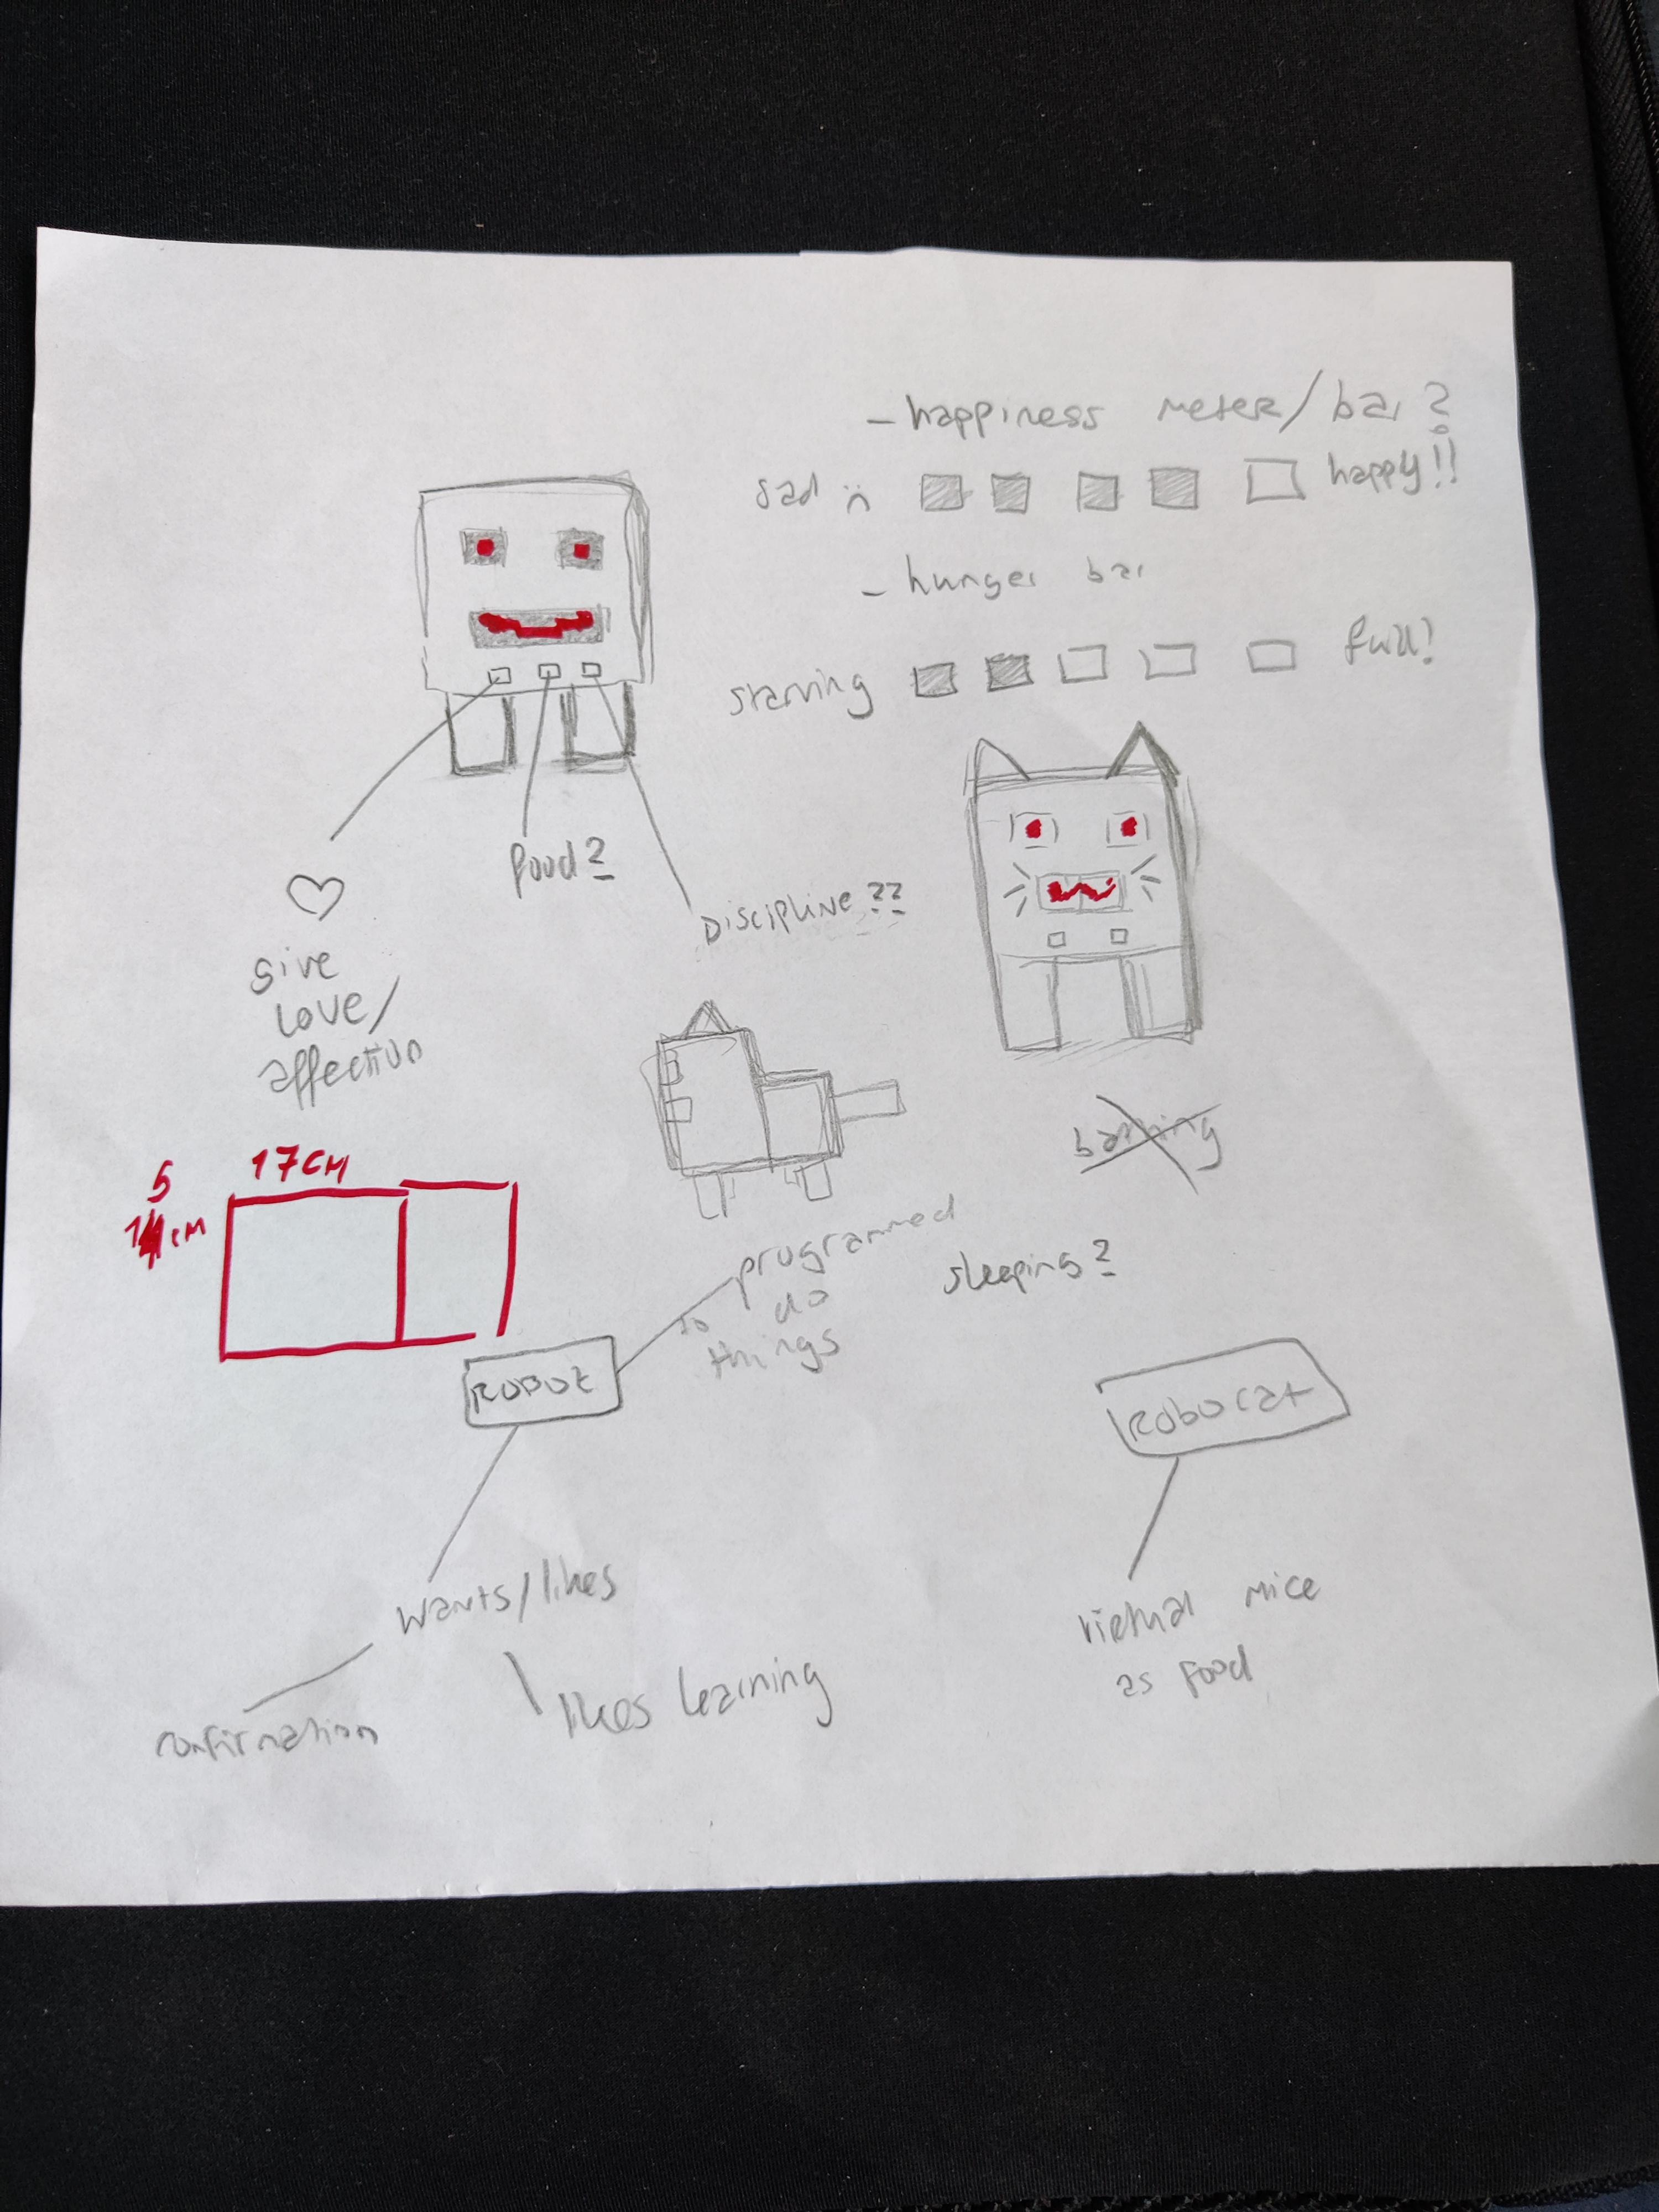 - happiness meter/bar?
sad :( happy!!
- hunger bar
starving full!
food?
DISCIPLINE??
give
love/
affection
17CM
5
1 cm
bathing
programmed
to do
things
sleeping?
ROBOT
Robocat
wants/likes
virtual mice
as food
likes learning
confirmation